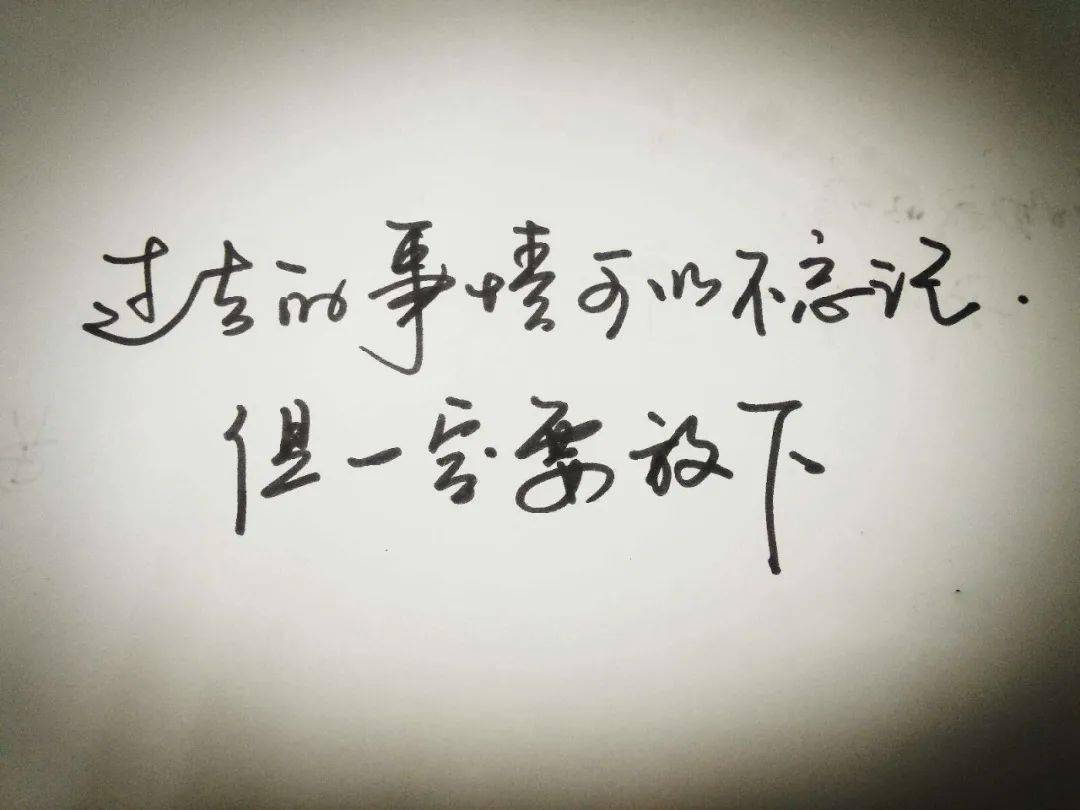 过去的事情可以不忘记.
但一定要放下